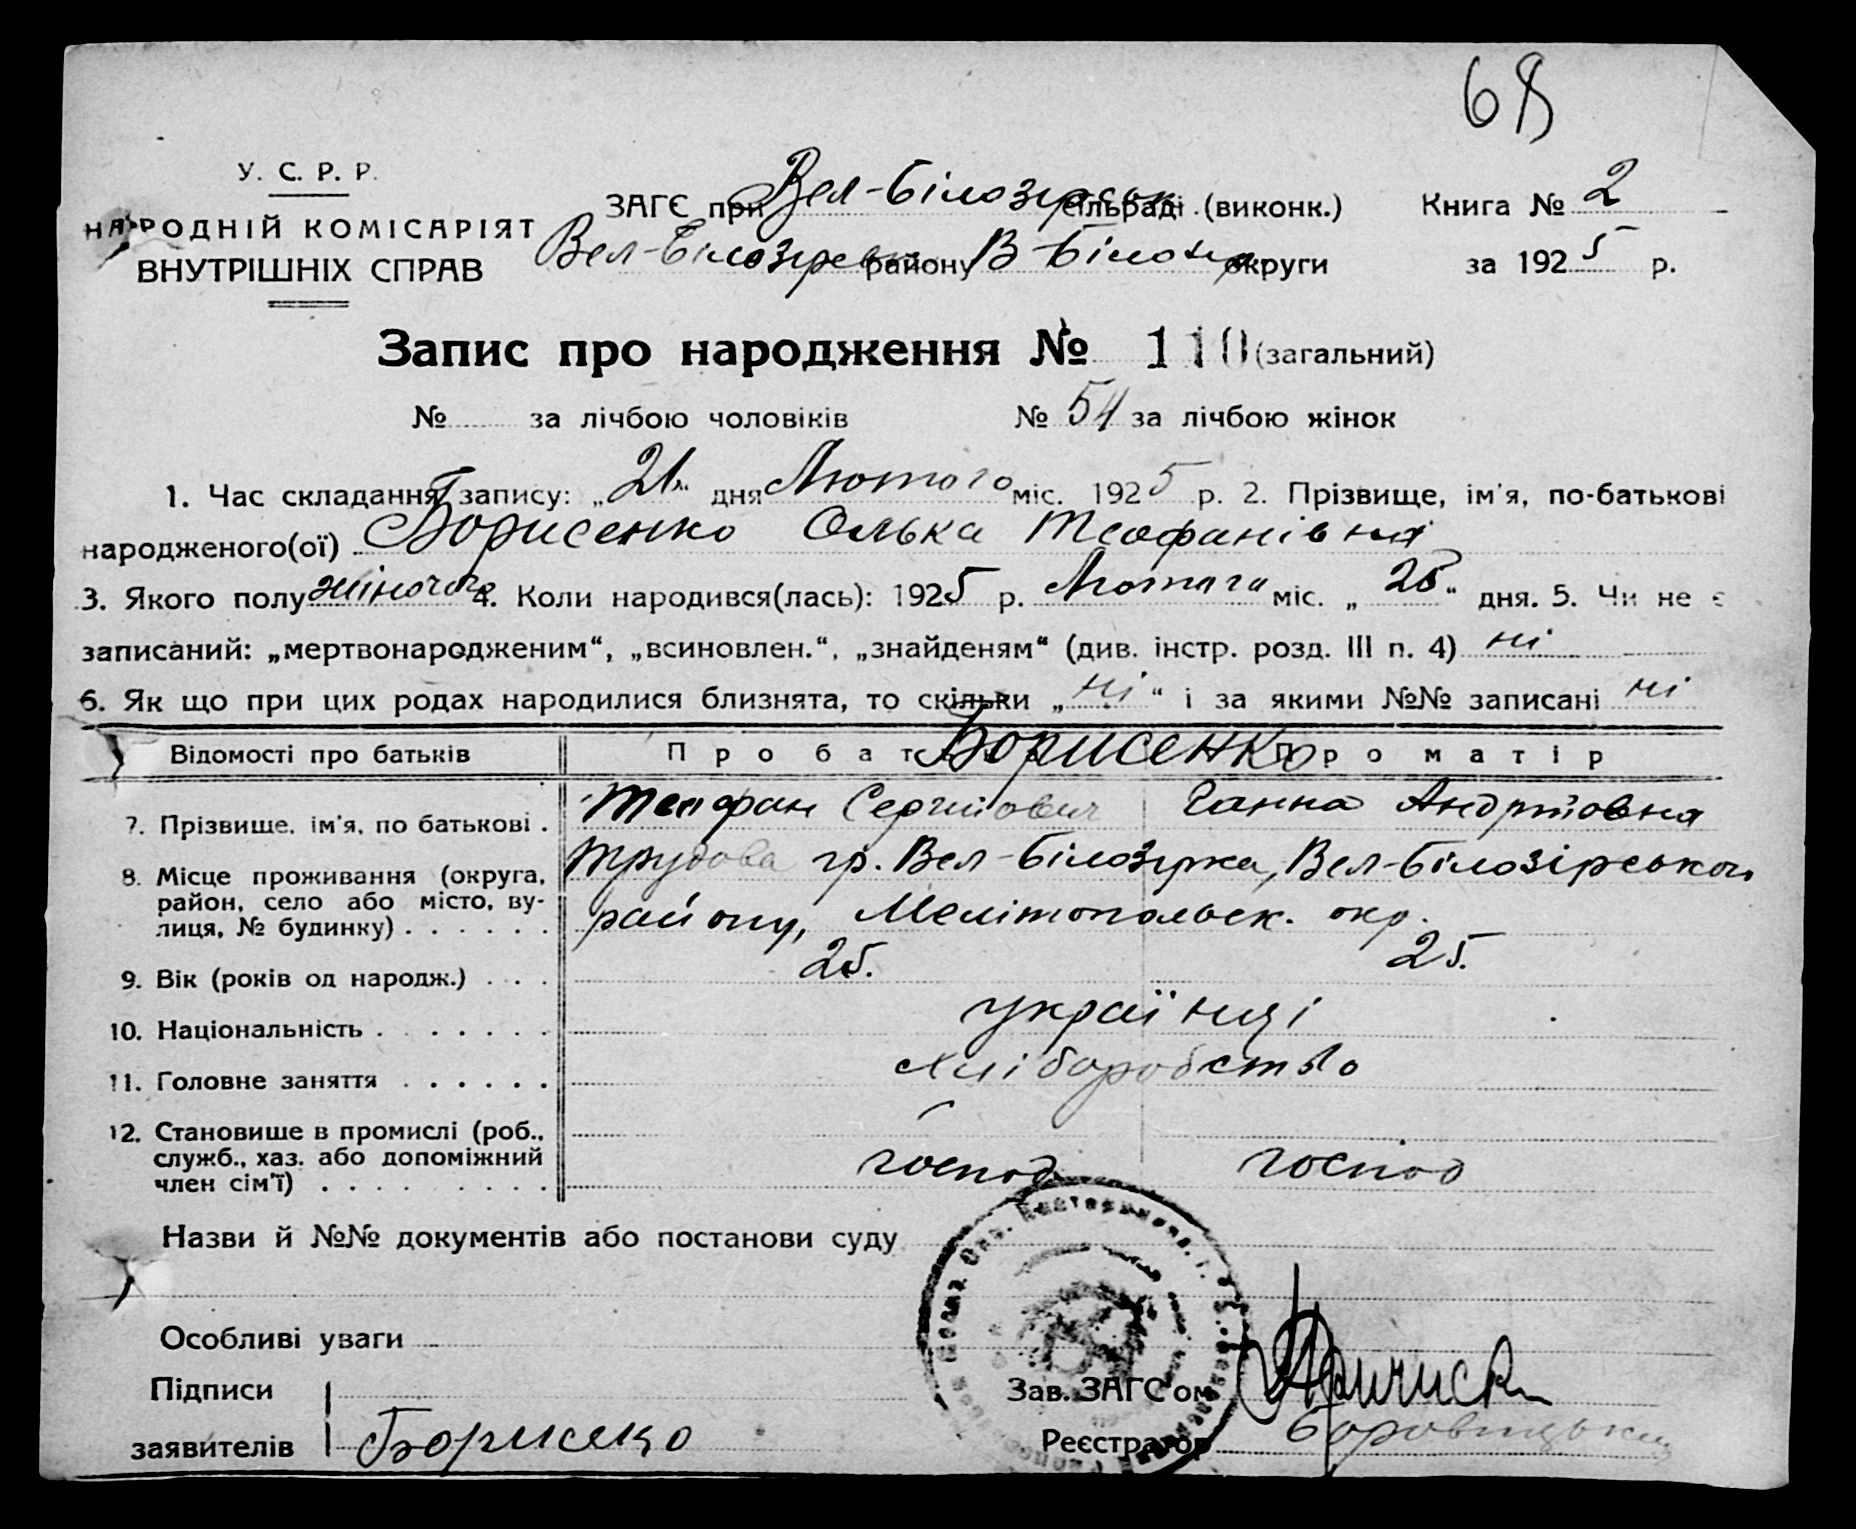 68
У. С. Р. Р.
НАРОДНІЙ КОМІСАРІЯТ
ВНУТРІШНІХ СПРАВ
ЗАГЄ при Вел-Білозірськ сільраді (виконк.) Книга № 2
Вел-Білозірськ району В-Білозір округи за 1925 р.
Запис про народження № 110 (загальний)
№ за лічбою чоловіків № 54 за лічбою жінок
1. Час складання запису: „21“ дня Лютого міс. 1925 р. 2. Прізвище, ім'я, по-батькові
народженого(ої) Борисенко Олька Теофанівна
3. Якого полу жіночого 4. Коли народився(лась): 1925 р. Лютого міс. „ “ дня. 5. Чи не є
записаний: „мертвонародженим“, „всиновлен.“, „знайденям“ (див. інстр. розд. III п. 4) ні
6. Як що при цих родах народилися близнята, то скільки „ні“ і за якими №№ записані ні
Відомості про батьків Про батька Про матір
Борисенко
7. Прізвище, ім'я, по батькові . Теофан Сергійович Ганна Андріївна
8. Місце проживання (округа, район, село або місто, ву-
лиця, № будинку) . . . . . . Трудова гр. Вел-Білозірка, Вел-Білозірського
району, Мелітопольск. окр.
9. Вік (років од народж.) . . . 25. 25.
10. Національність . . . . . . . українці
11. Головне заняття . . . . . . хліборобство
12. Становище в промислі (роб.,
служб., хаз. або допоміжний
член сім'ї) . . . . . . . . . господ господ
Назви й №№ документів або постанови суду
Особливі уваги
Підписи
заявителів Борисенко
Зав. ЗАГС'ом
Реєстратор